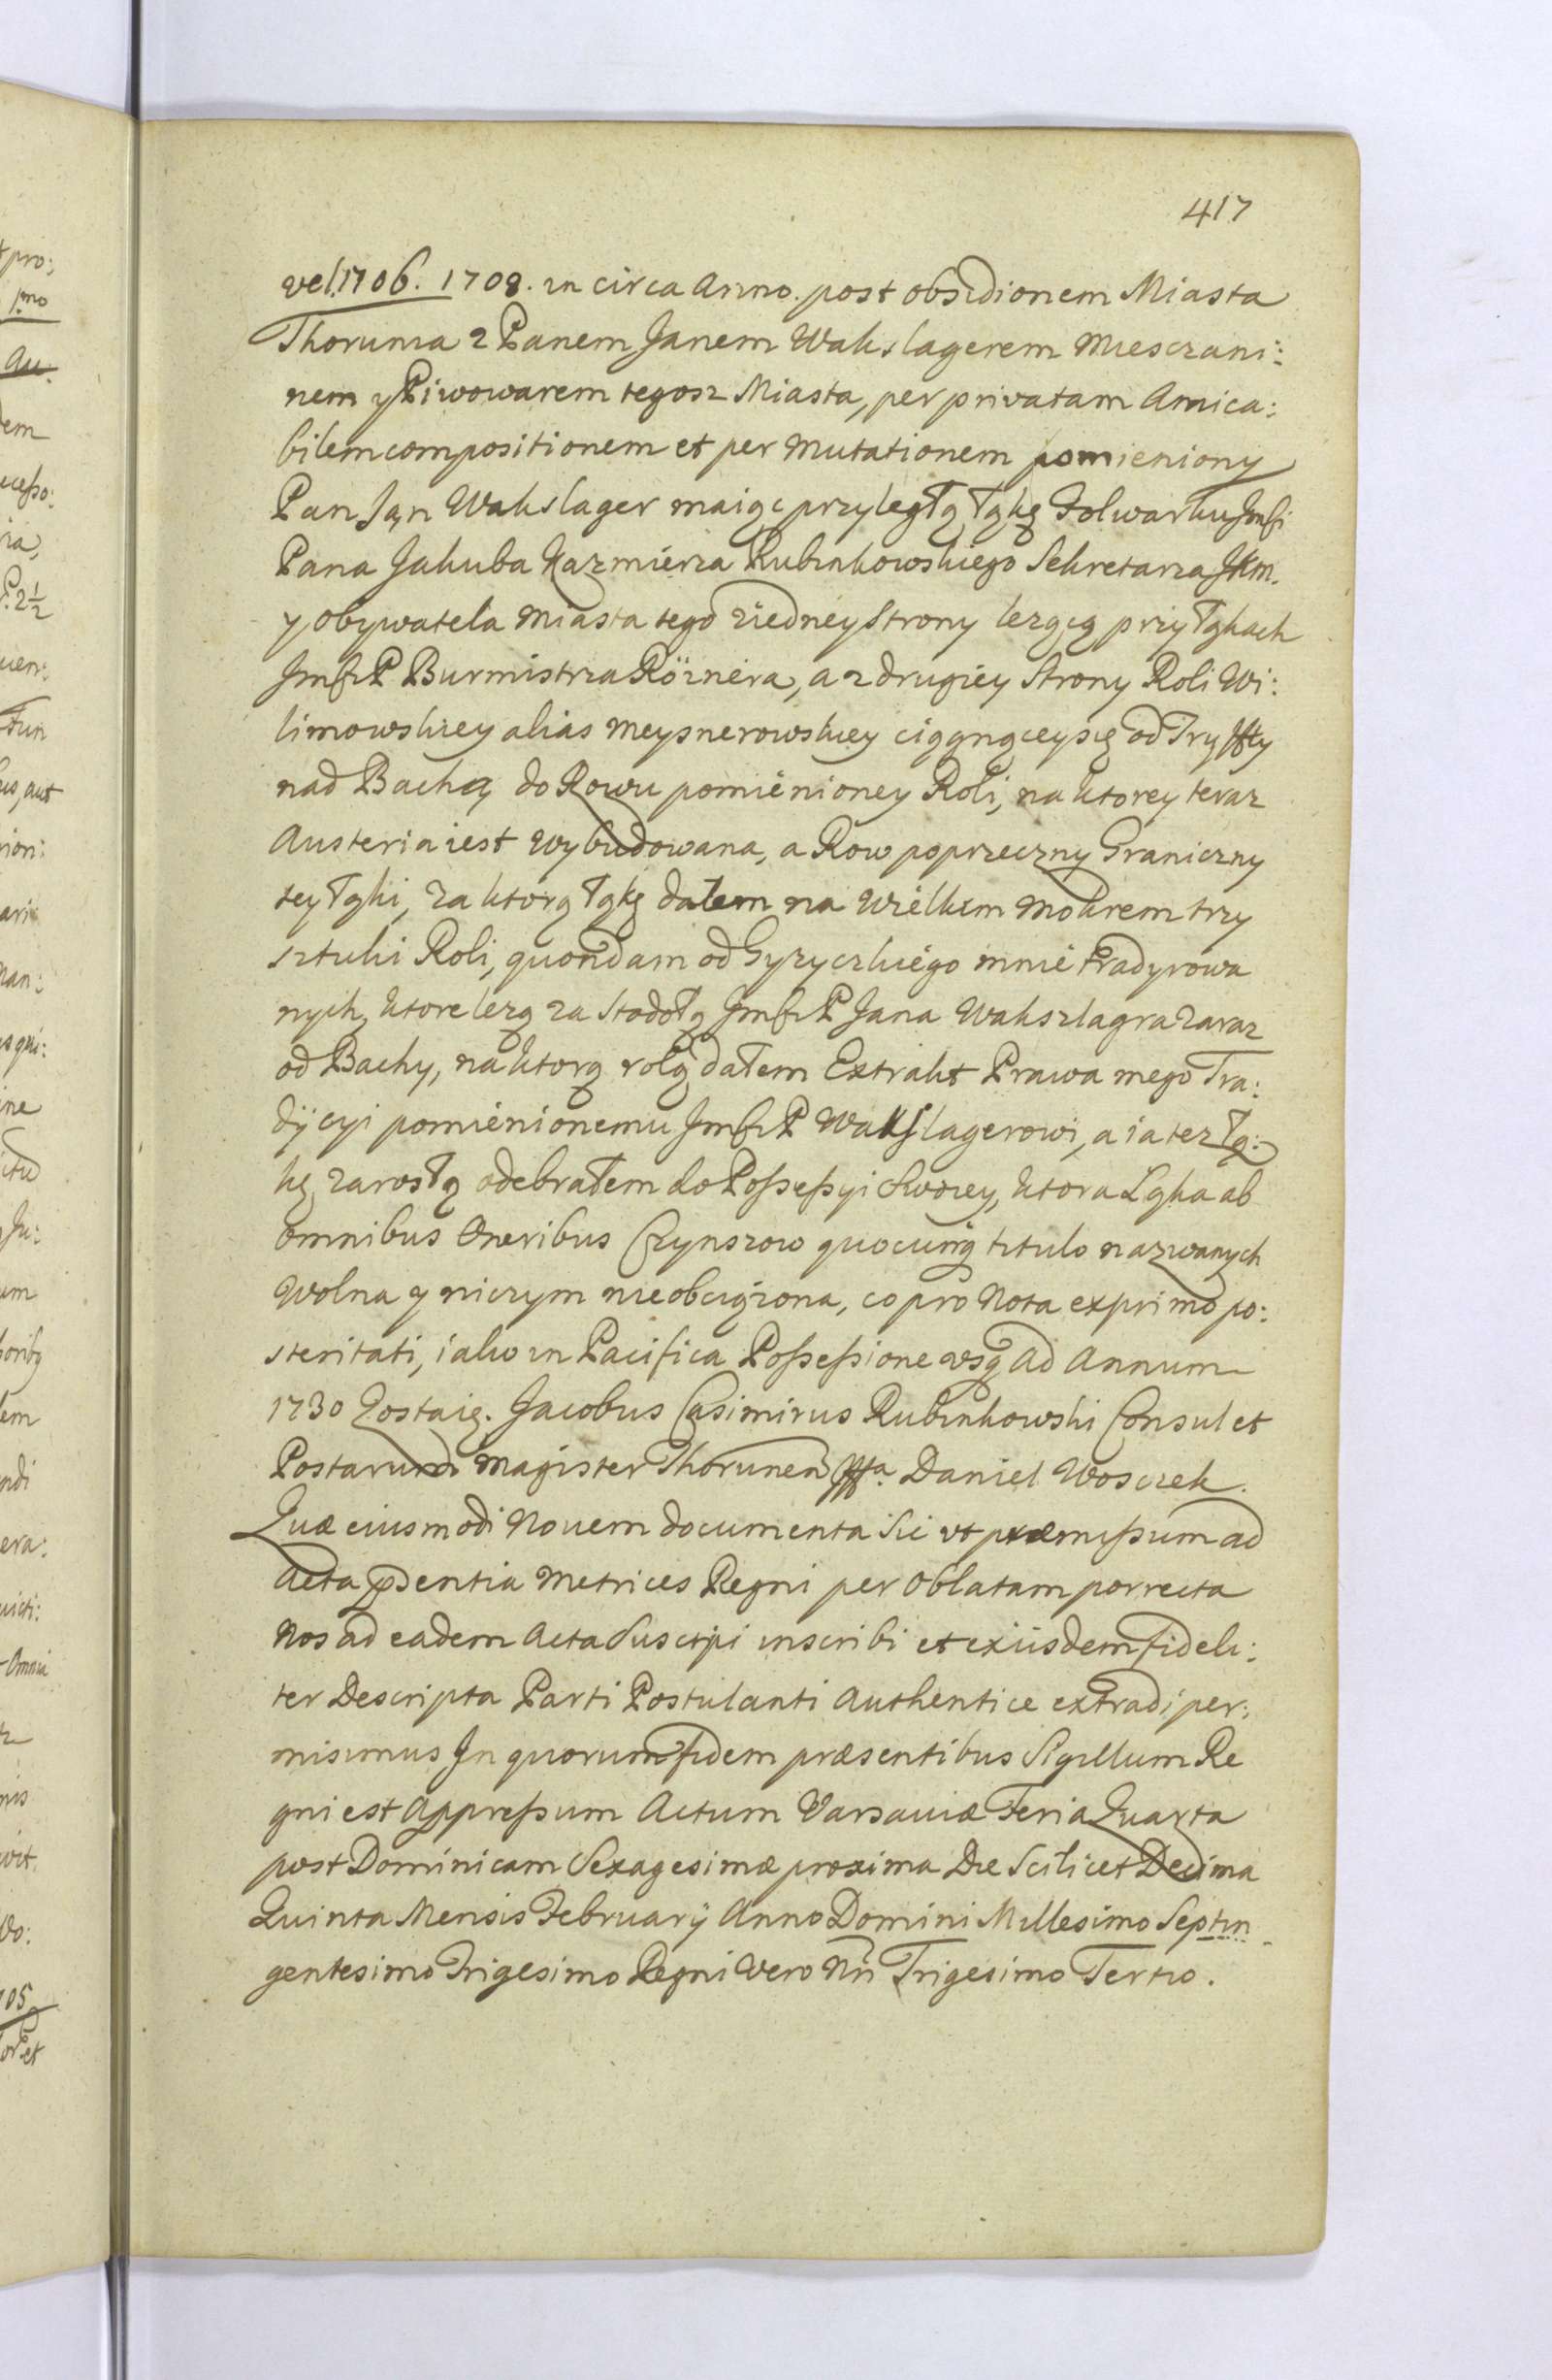 417
vel. 1706. 1708. in circa Anno. post obsidionem Miasta
Thorunia z Panem Janem Wakslagerem Miesczani:
nem y Piwowarem tegosz Miasta, per privatam Amica:
bilem compositionem et per Mutationem pomieniony
Pan Jan Wakslager maiąc przyległą łąkę Folwarku Jmći
Pana Jakuba Kazmierza Rubinkowskiego Sekretarza JKm.
y obywatela Miasta tego ziedney Strony lezącą przy łąkach
Jmći P Burmistrza Röznera, a z drugiey Strony Roli Wi:
limowskiey alias Meysnerowskiey ciągnącey się od Tryffty
nad Bachą do Rowu pomienioney Roli, na ktorey teraz
Austeria iest wybudowana, a Row poprzeczny Graniczny
tey łąki, za ktorą łąkę dałem na Wielkim Mokrem trzy
sztuki Roli, quondam od Gyzyczkiego mnie tradyrowa
nych, ktore lezą za stodołą Jmći P Jana Wakszlagra zaraz
od Bachy, na ktorą rolą dałem Extrakt Prawa mego Tra:
dÿcyi pomienionemu Jmći P Wakslagerowi, a ia tez łą:
kę zarosłą odebrałem do Possessyi Swoiey, ktora Łąka ab
omnibus Oneribus Czynszow quocunq titulo nazwanych
Wolna y niczym nieobciązona, co pro Nota exprimo po:
steritati, iako in Pacifica Possessione usq ad Annum
1730 Zostaię. Jacobus Casimirus Rubinkowski Consul et
Postarum Magister Thorunen mppa Daniel Wosczek.
Quæ eiusmodi Novem documenta Sic ut præmissum ad
Acta pdentia Metrices Regni per Oblatam porrecta
Nos ad eadem Acta Suscipi inscribi et exiisdem fideli:
ter Descripta Parti Postulanti Authentice extradi per:
misimus In quorum fidem præsentibus Sigillum Re
gni est Appressum Actum Varsaviæ Feria Quarta
post Dominicam Sexagesimæ proxima Die Scilicet Decima
Quinta Mensis Februarÿ Anno Domini Millesimo Septin
gentesimo Trigesimo Regni Vero Nri Trigesimo Tertio.